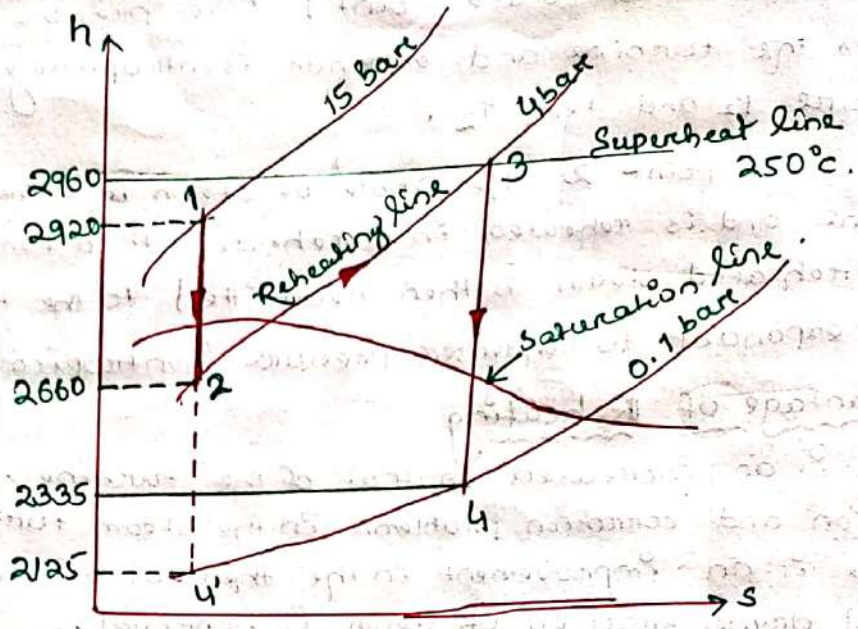 h
15 bare
4 bare
Superheat line
250°c.
2960
3
1
2920
Reheating line
Saturation line.
0.1 bare
2660
2
2335
4
2125
4'
s